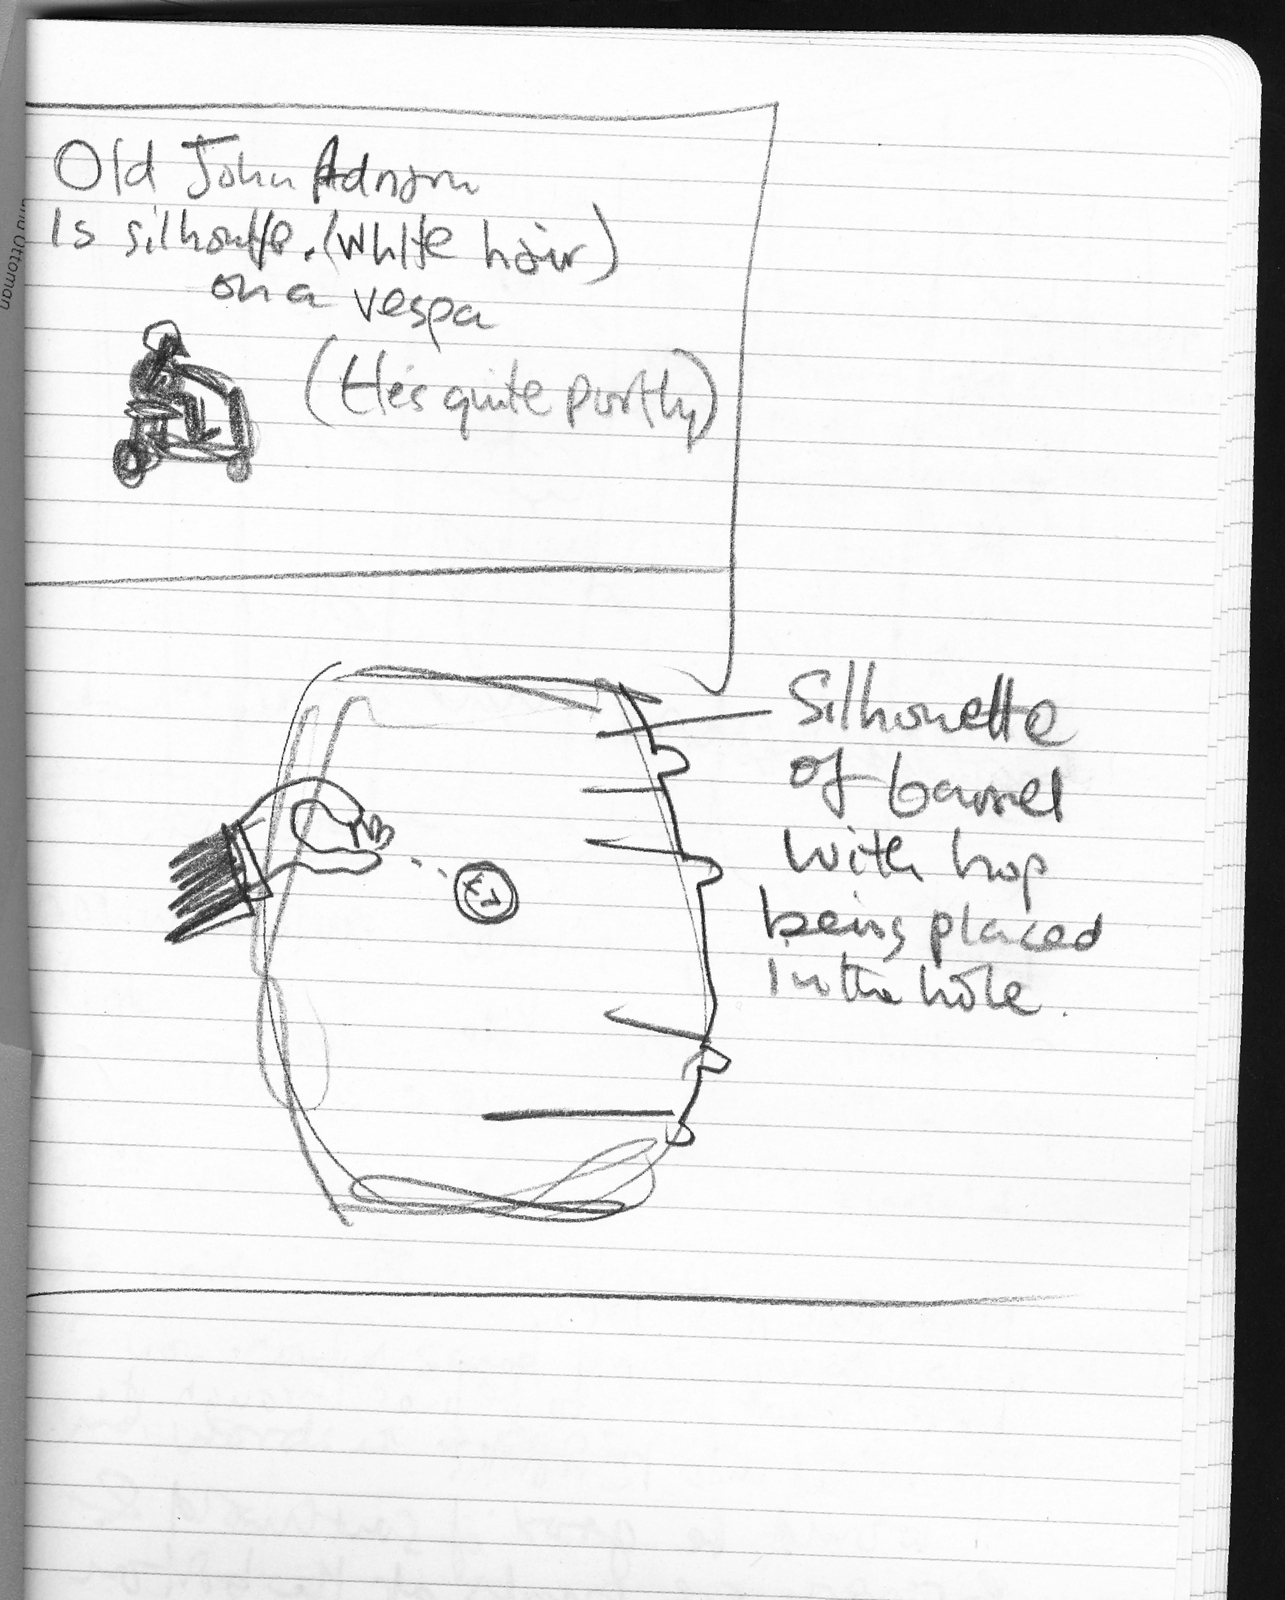 Old John Adnam
Is silhouette. (White hair)
on a vespa
(He's quite portly)
Silhouette
of barrel
with hop
being placed
in the hole.
Ottoman